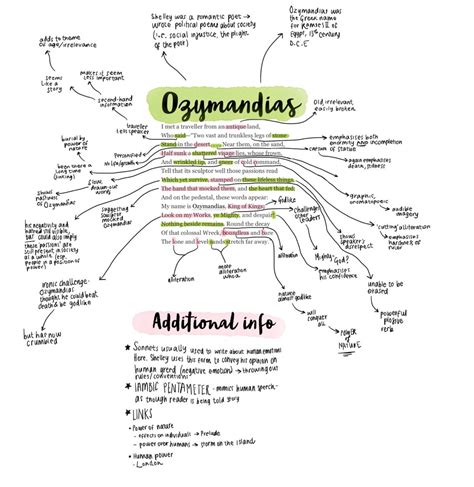 Shelley was a romantic poet →
wrote political poems about society
(i.e. social injustice, the plight
of the poor)
Ozymandias was
the Greek name
for Ramses II of
Egypt, 13th century
B.C.E
adds to theme
of age/irrelevance
seems
like a
story
makes it seem
less important
second-hand
information
traveller
is speaker
Old, irrelevant,
easily broken
Ozymandias
I met a traveller from an antique land,
Who said—"Two vast and trunkless legs of stone
Stand in the desert. . . . Near them, on the sand,
Half sunk a shattered visage lies, whose frown,
And wrinkled lip, and sneer of cold command,
Tell that its sculptor well those passions read
Which yet survive, stamped on those lifeless things,
The hand that mocked them, and the heart that fed;
And on the pedestal, these words appear:
My name is Ozymandias, King of Kings;
Look on my Works, ye Mighty, and despair!
Nothing beside remains. Round the decay
Of that colossal Wreck, boundless and bare
The lone and level sands stretch far away.
burial by
power of
nature
Personified
been there a
long time
long
drawn out
words
shows
nastiness
of
Ozymandias
suggesting
sculptor
mocked
Ozymandias
his negativity and
named still visible,
but could also imply
these 'passions' are
still present in society
as a whole (esp.
people in a position of
power)
ironic challenge-
ozymandias
thought he could beat
death & be godlike
but has now
crumbled
emphasises both
enormity and incompletion
of statue
again emphasises
death, sidness
graphic,
onomatopoeic
audible
imagery
'cutting' alliteration
emphasises
harshness of
ruler
godlike
challenges
other
leaders
shows
speaker's
disrespect
Mighty-
God?
emphasises
his confidence
unable to be
erased
powerful
plosive
verb
alliteration
more
alliteration
whoa
alliteration
nature
almost godlike
will
conquer
all
POWER
of
NATURE
Additional info
★ Sonnets usually used to write about human emotions
Here, Shelley uses this form to convey his opinion on
human greed (negative emotion) → throwing out
rules/conventions?
★ IAMBIC PENTAMETER - mimics human speech-
as though reader is being told story
★ LINKS
• Power of nature
- effects on individuals → Prelude
- power over humans → Storm on the Island
• Human power
- London